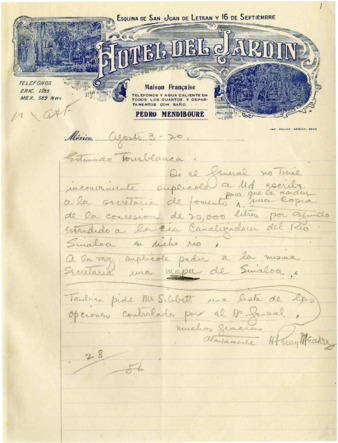 1
ESQUINA DE SAN JUAN DE LETRAN Y 16 DE SEPTIEMBRE
HOTEL DEL JARDIN
Maison Française
TELEFONOS Y AGUA CALIENTE EN
TODOS LOS CUARTOS Y DEPAR-
TAMENTOS CON BAÑO.
PEDRO MENDIBOURE
TELEFONOS
ERIC.
MEX. 589 NERI
México, Agosto 3-20.
Estimado Torreblanca.
Si el General no tiene
inconveniente suplicole a Ud escriba
a la secretaria de fomento, para que le manden una copia
de la concesion de 20,000 litros por segundo
a la cia Canalizadora del Rio
Sinaloa en dicho rio.
A la vez suplicole pedir a la misma
Secretaria una mapa de Sinaloa.
Tambien pide Mr una lista de las
opciones controladas por el Sr General.
muchas gracias
28
56